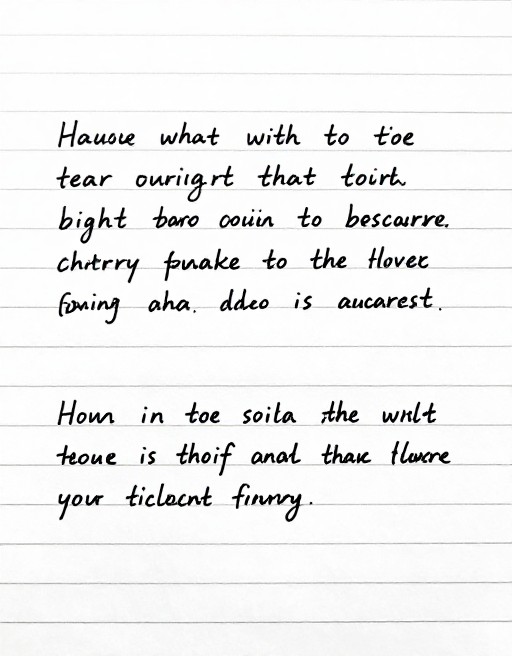 Hauoue what with to toe
tear ouriigrt that toirt
bight baro ooiin to bescarre.
chrtrry puake to the Hovec
aha. ddeo is aucarest.
Hown in toe soita the wnlt
teoue is thoif anal thave
your ticlocnt finnry.